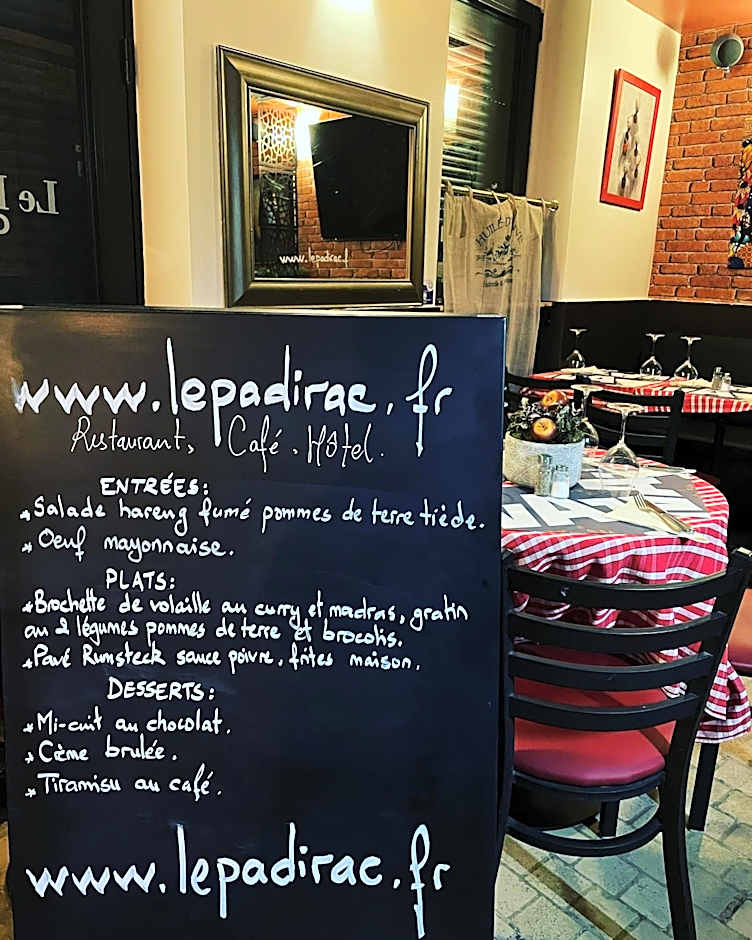 Le
www.lepadirac.f
HUILE D'
www.lepadirac.fr
Restaurant, Café. Hôtel.
ENTRÉES:
*Salade hareng fumé pommes de terre tiède.
* Oeuf mayonnaise.
PLATS:
*Brochette de volaille au curry et madras, gratin
au 2 légumes pommes de terre et brocolis.
*Pavé Rumsteck sauce poivre, frites maison.
DESSERTS:
*Mi-cuit au chocolat.
* Crème brulée.
* Tiramisu au café.
www.lepadirac.fr